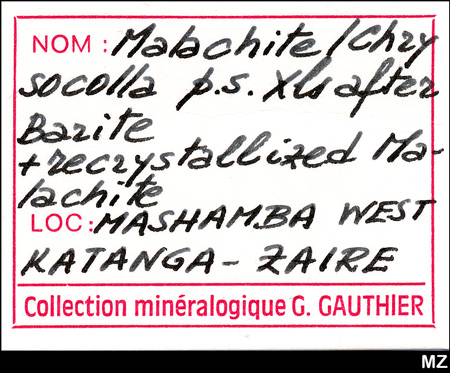 NOM : Malachite/Chry
socolla p.s. Xls after
Barite
+recrystallized Ma-
lachite
LOC: MASHAMBA WEST
KATANGA - ZAIRE
Collection minéralogique G. GAUTHIER
MZ